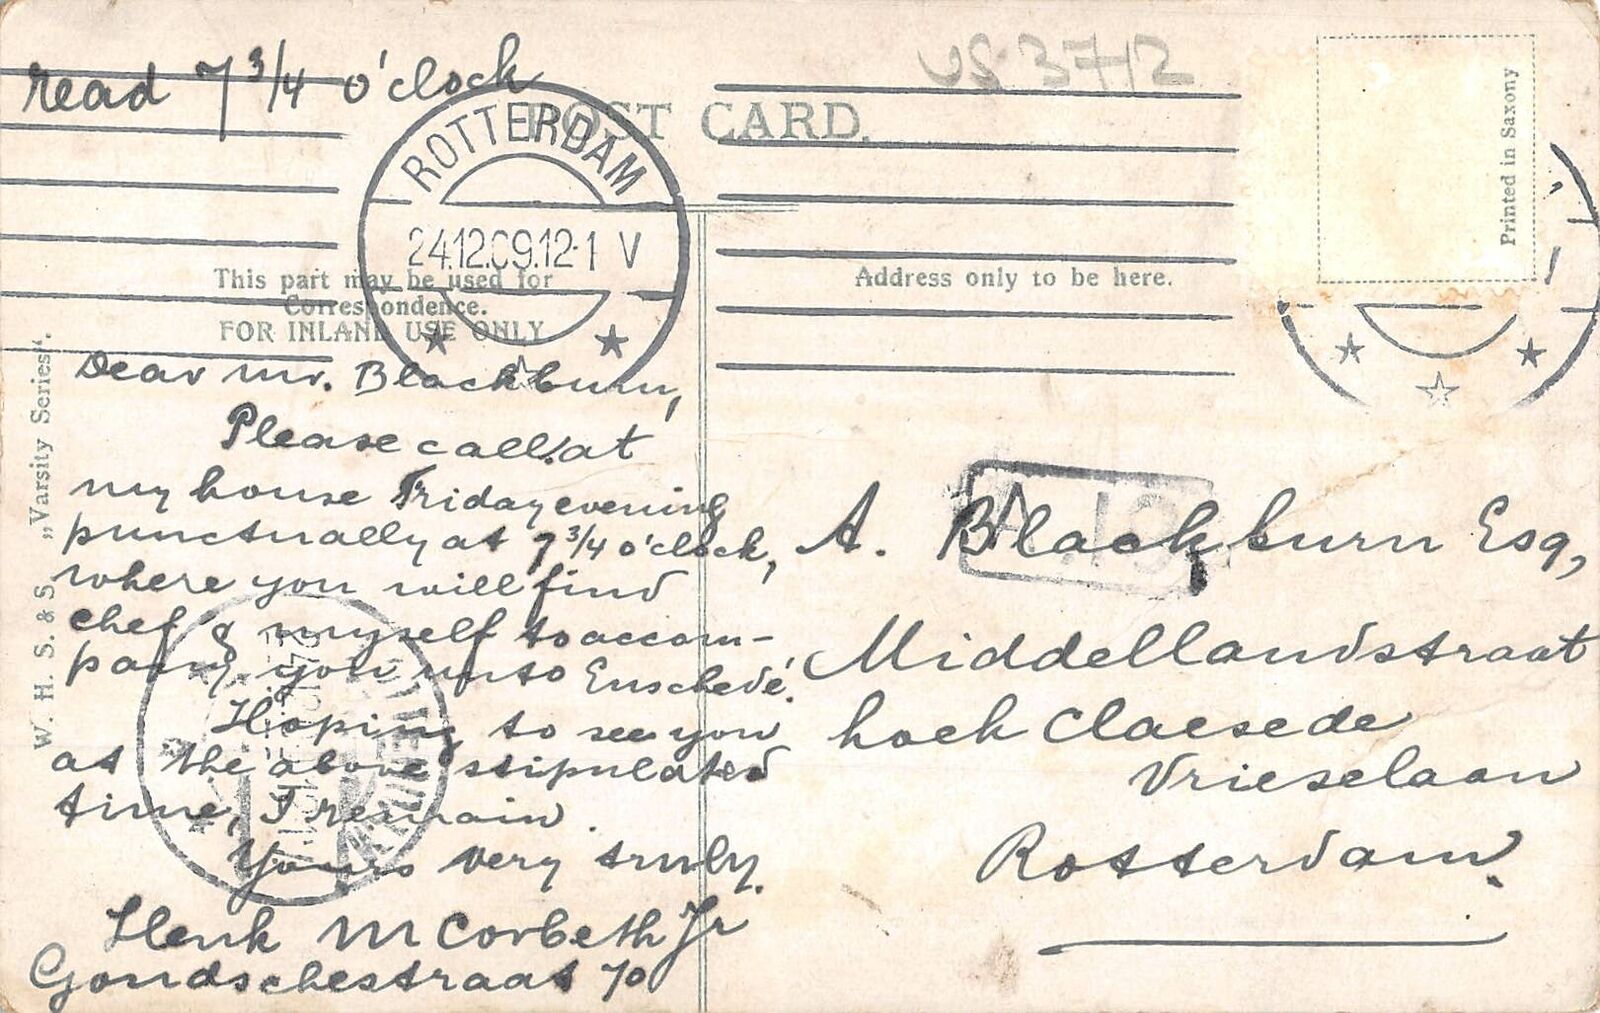 read 7 3/4 o'clock
US 3712
POST CARD.
Printed in Saxony
ROTTERDAM
24.12.09.12-1 V
This part may be used for
Correspondence.
FOR INLAND USE ONLY
Address only to be here.
W. H. S. & S. „Varsity Series".
Dear Mr. Blackburn,
Please call at
my house Friday evening
punctually at 7 3/4 o'clock,
where you will find
chef & myself to accom-
pany you unto Enschedé.
Hoping to see you
at the above stipulated
time, I remain.
Yours very truly.
Henk M Corbeth Jr
Goudschestraat 70
A. Blackburn Esq,
Middellandstraat
hoek Claesede
Vrieselaan
Rotterdam.